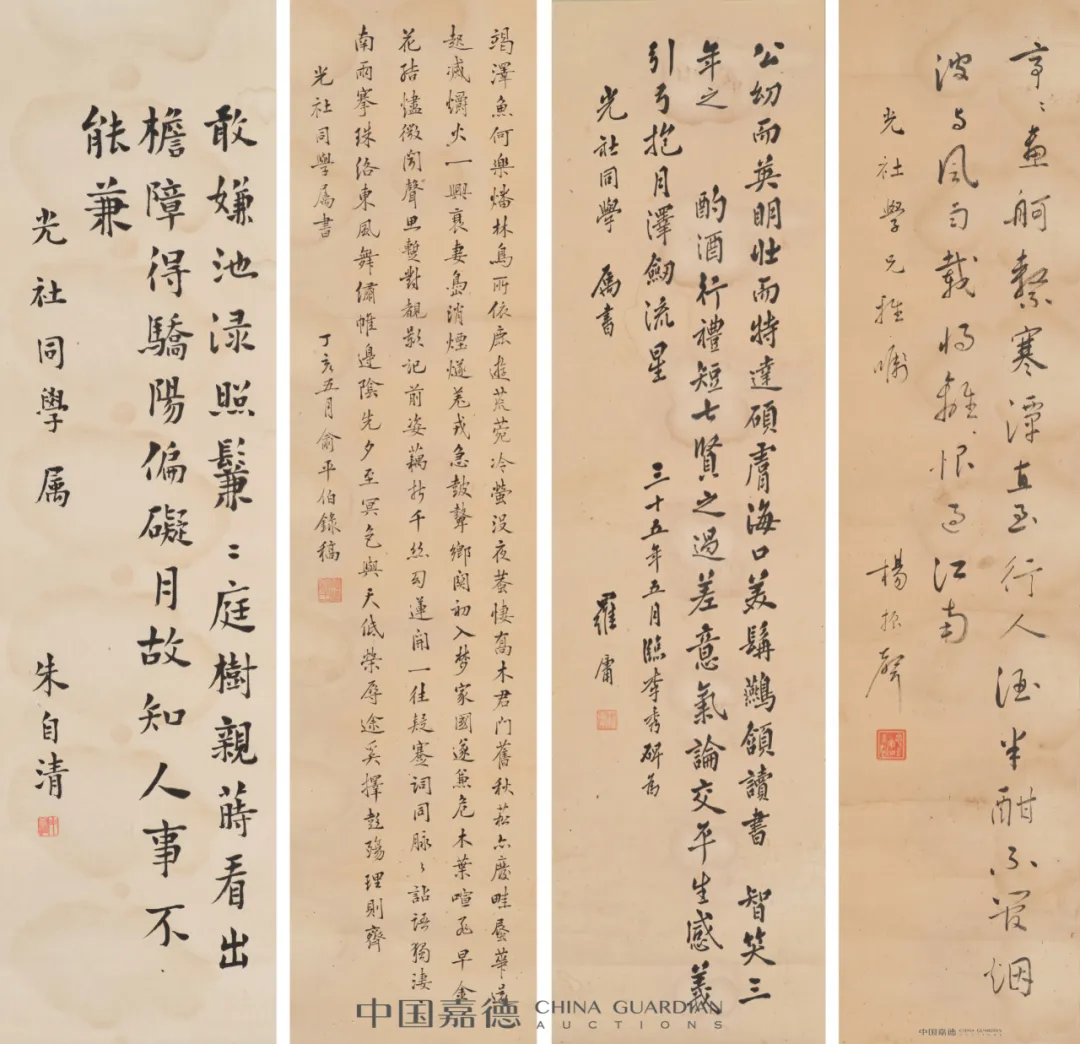 亭〻畫舸繫寒潭直至行人酒半酣不管烟
波與風雨載將離恨過江南
光社學兄雅囑 楊振聲
公幼而英明壮而特達碩膚海口美鬚鷰頷讀書 智笑三
年之 酌酒行禮短七賢之過差意氣論交平生感義
引弓抱月澤劒流星 三十五年五月臨李秀碑為
光社同學 屬書 羅庸
竭澤魚何樂燔林鳥所依鹿遊荒苑冷螢没夜悽喬木君門舊秋菘畦蜃華
起滅爝火一興衰妻島消煙燧羌戎急鼓鼙鄉関初入夢家國遂兼危木葉喧飛早金
花結燼微聞聲思蹔對覩影記前姿藕折千絲勾蓮開一往疑蹇詞同脉〻詀語獨淒
南雨搴珠洛東風舞繡帷邊陰先夕至冥色與天低榮辱途奚擇彭殤理則齊
光社同學屬書 丁亥五月俞平伯錄稿
敢嫌池淥照鬑〻庭樹親蒔看出
檐障得驕陽偏礙月故知人事不
能兼
光社同學属 朱自清
中国嘉德 CHINA GUARDIAN AUCTIONS
中国嘉德 CHINA GUARDIAN AUCTIONS